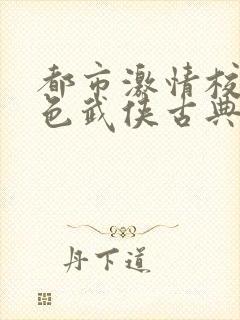 都市激情校
色武侠古典
丹下道